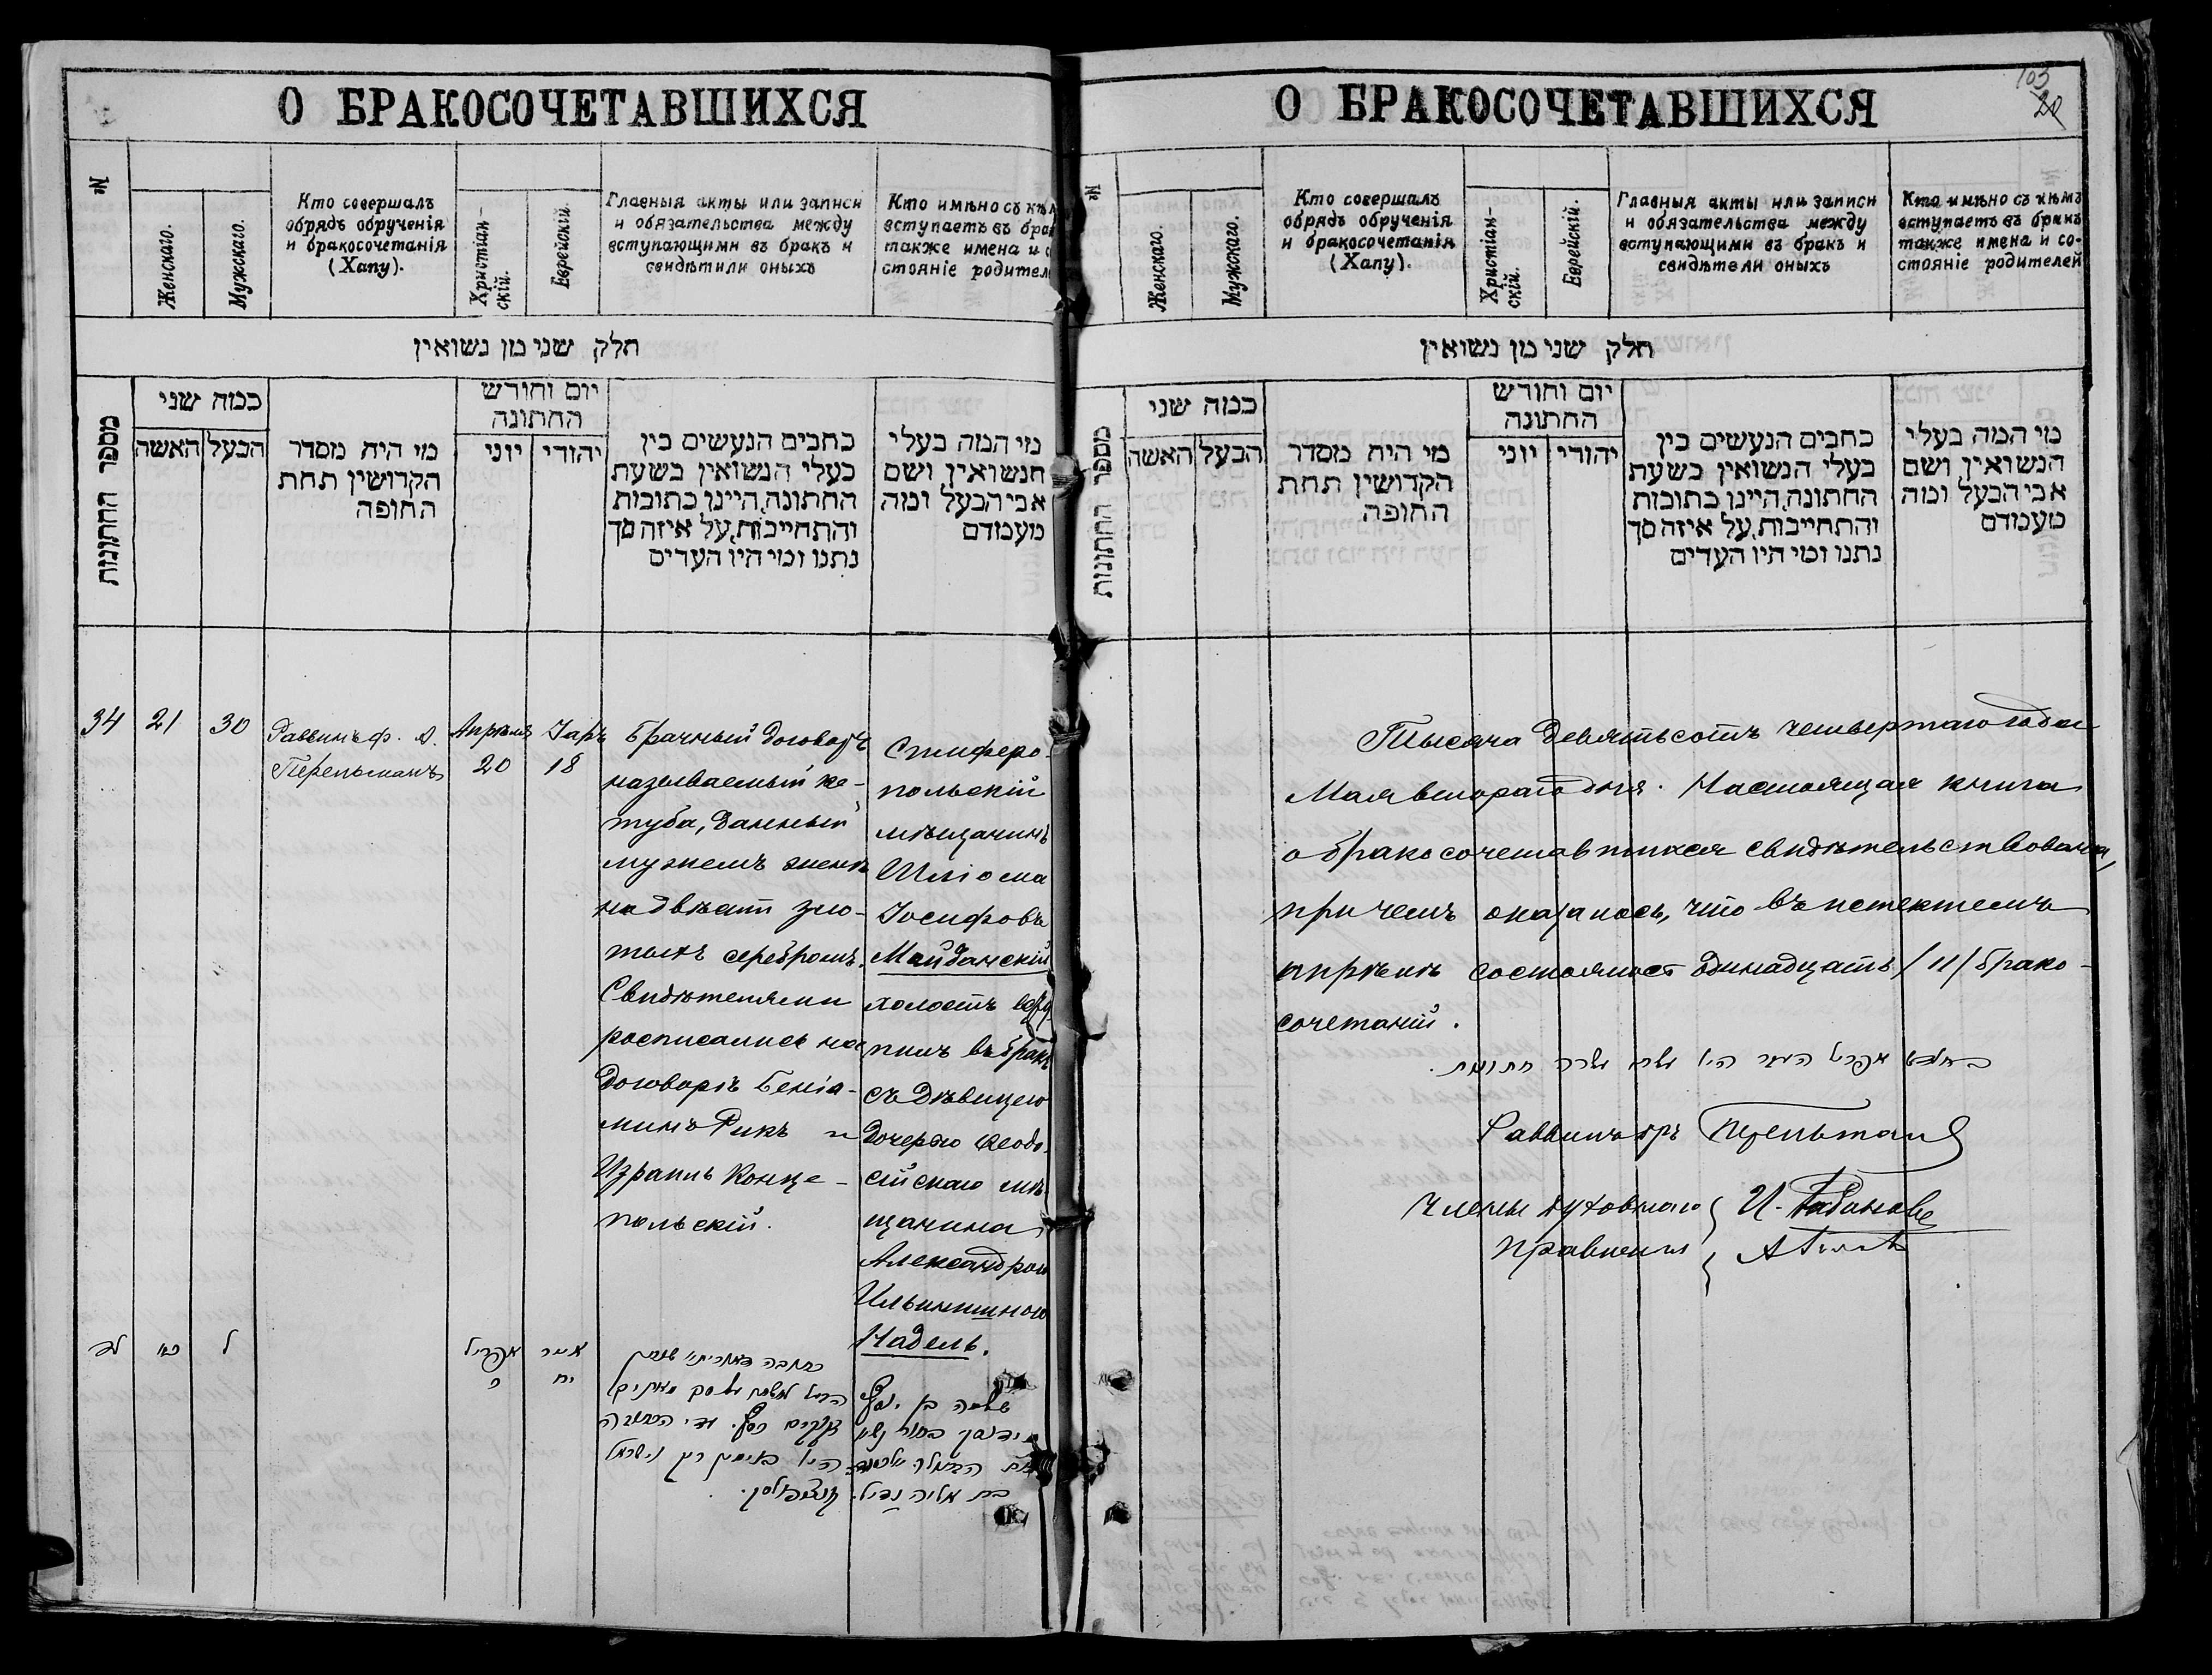 О БРАКОСОЧЕТАВШИХСЯ
№
Женскаго.
Мужскаго.
Кто совершалъ
обрядъ обрученія
и бракосочетанія
(Хапу).
Христіан-
скій.
Еврейскій.
Главныя акты или записи
и обязательства между
вступающими въ бракъ и
свидѣтили оныхъ
Кто имѣно съ кѣм
вступаетъ въ брак
также имена и с
стояніе родител
חלק שני מן נשואין
מספר החתונות
כמה שני
האשה
הבעל
מי היה מסדר
הקדושין תחת
החופה
יום וחורש
החתונה
יוני
יהודי
כתבים הנעשים בין
בעלי הנשואין בשעת
החתונה, היינו כתובות
והתחייבות, על איזה סך
נתנו ומי היו העדים
מי המה בעלי
הנשואין ושם
אבי הבעל ומה
מעמדם
34
21
30
Раввинъ ф. д.
Перельманъ
Апрѣля
20
Іаръ
18
Брачный договоръ
называемый ке-
туба, данный
мужемъ женѣ
на двѣсти зло-
тыхъ серебромъ.
Свидѣтелями
росписались на
договорѣ Беніа-
минъ Рикъ и
Израиль Конце-
польскій.
Симферо-
польскій
мѣщанинъ
Шліома
Іосифовъ
Майданскій
холостъ всту
пилъ въ бракъ
съ дѣвицею
дочерью Ѳеодо-
сійскаго мѣ-
щанина
Александрою
Ильинишною
Надель.
לד
כא
ל
אפריל
כ
אייר
יח
שלמה בן יוסף
בת אליה נדיל.
О БРАКОСОЧЕТАВШИХСЯ
103
20
№
Женскаго.
Мужскаго.
Кто совершалъ
обрядъ обрученія
и бракосочетанія
(Хапу).
Христіан-
скій.
Еврейскій.
Главныя акты или записи
и обязательства между
вступающими въ бракъ и
свидѣтели оныхъ
Кто имѣно съ кѣмъ
вступаетъ въ бракъ
также имена и со-
стояніе родителей
חלק שני מן נשואין
מספר החתונות
כמה שני
האשה
הבעל
מי היה מסדר
הקדושין תחת
החופה
יום וחורש
החתונה
יוני
יהודי
כתבים הנעשים בין
בעלי הנשואין בשעת
החתונה, היינו כתובות
והתחייבות, על איזה סך
נתנו ומי היו העדים
מי המה בעלי
הנשואין ושם
אבי הבעל ומה
מעמדם
Тысяча девятьсотъ четвертаго года
Мая втораго дня. Настоящая книга
о бракосочетавшихся свидѣтельствована,
при чемъ оказалось, что въ истекшемъ
апрѣлѣ состоялось одинадцать /11/ брако-
сочетаній.
בחדש אפריל העבר היו אחת עשרה חתונות.
Раввинъ Перельман
Члены духовнаго
правленія